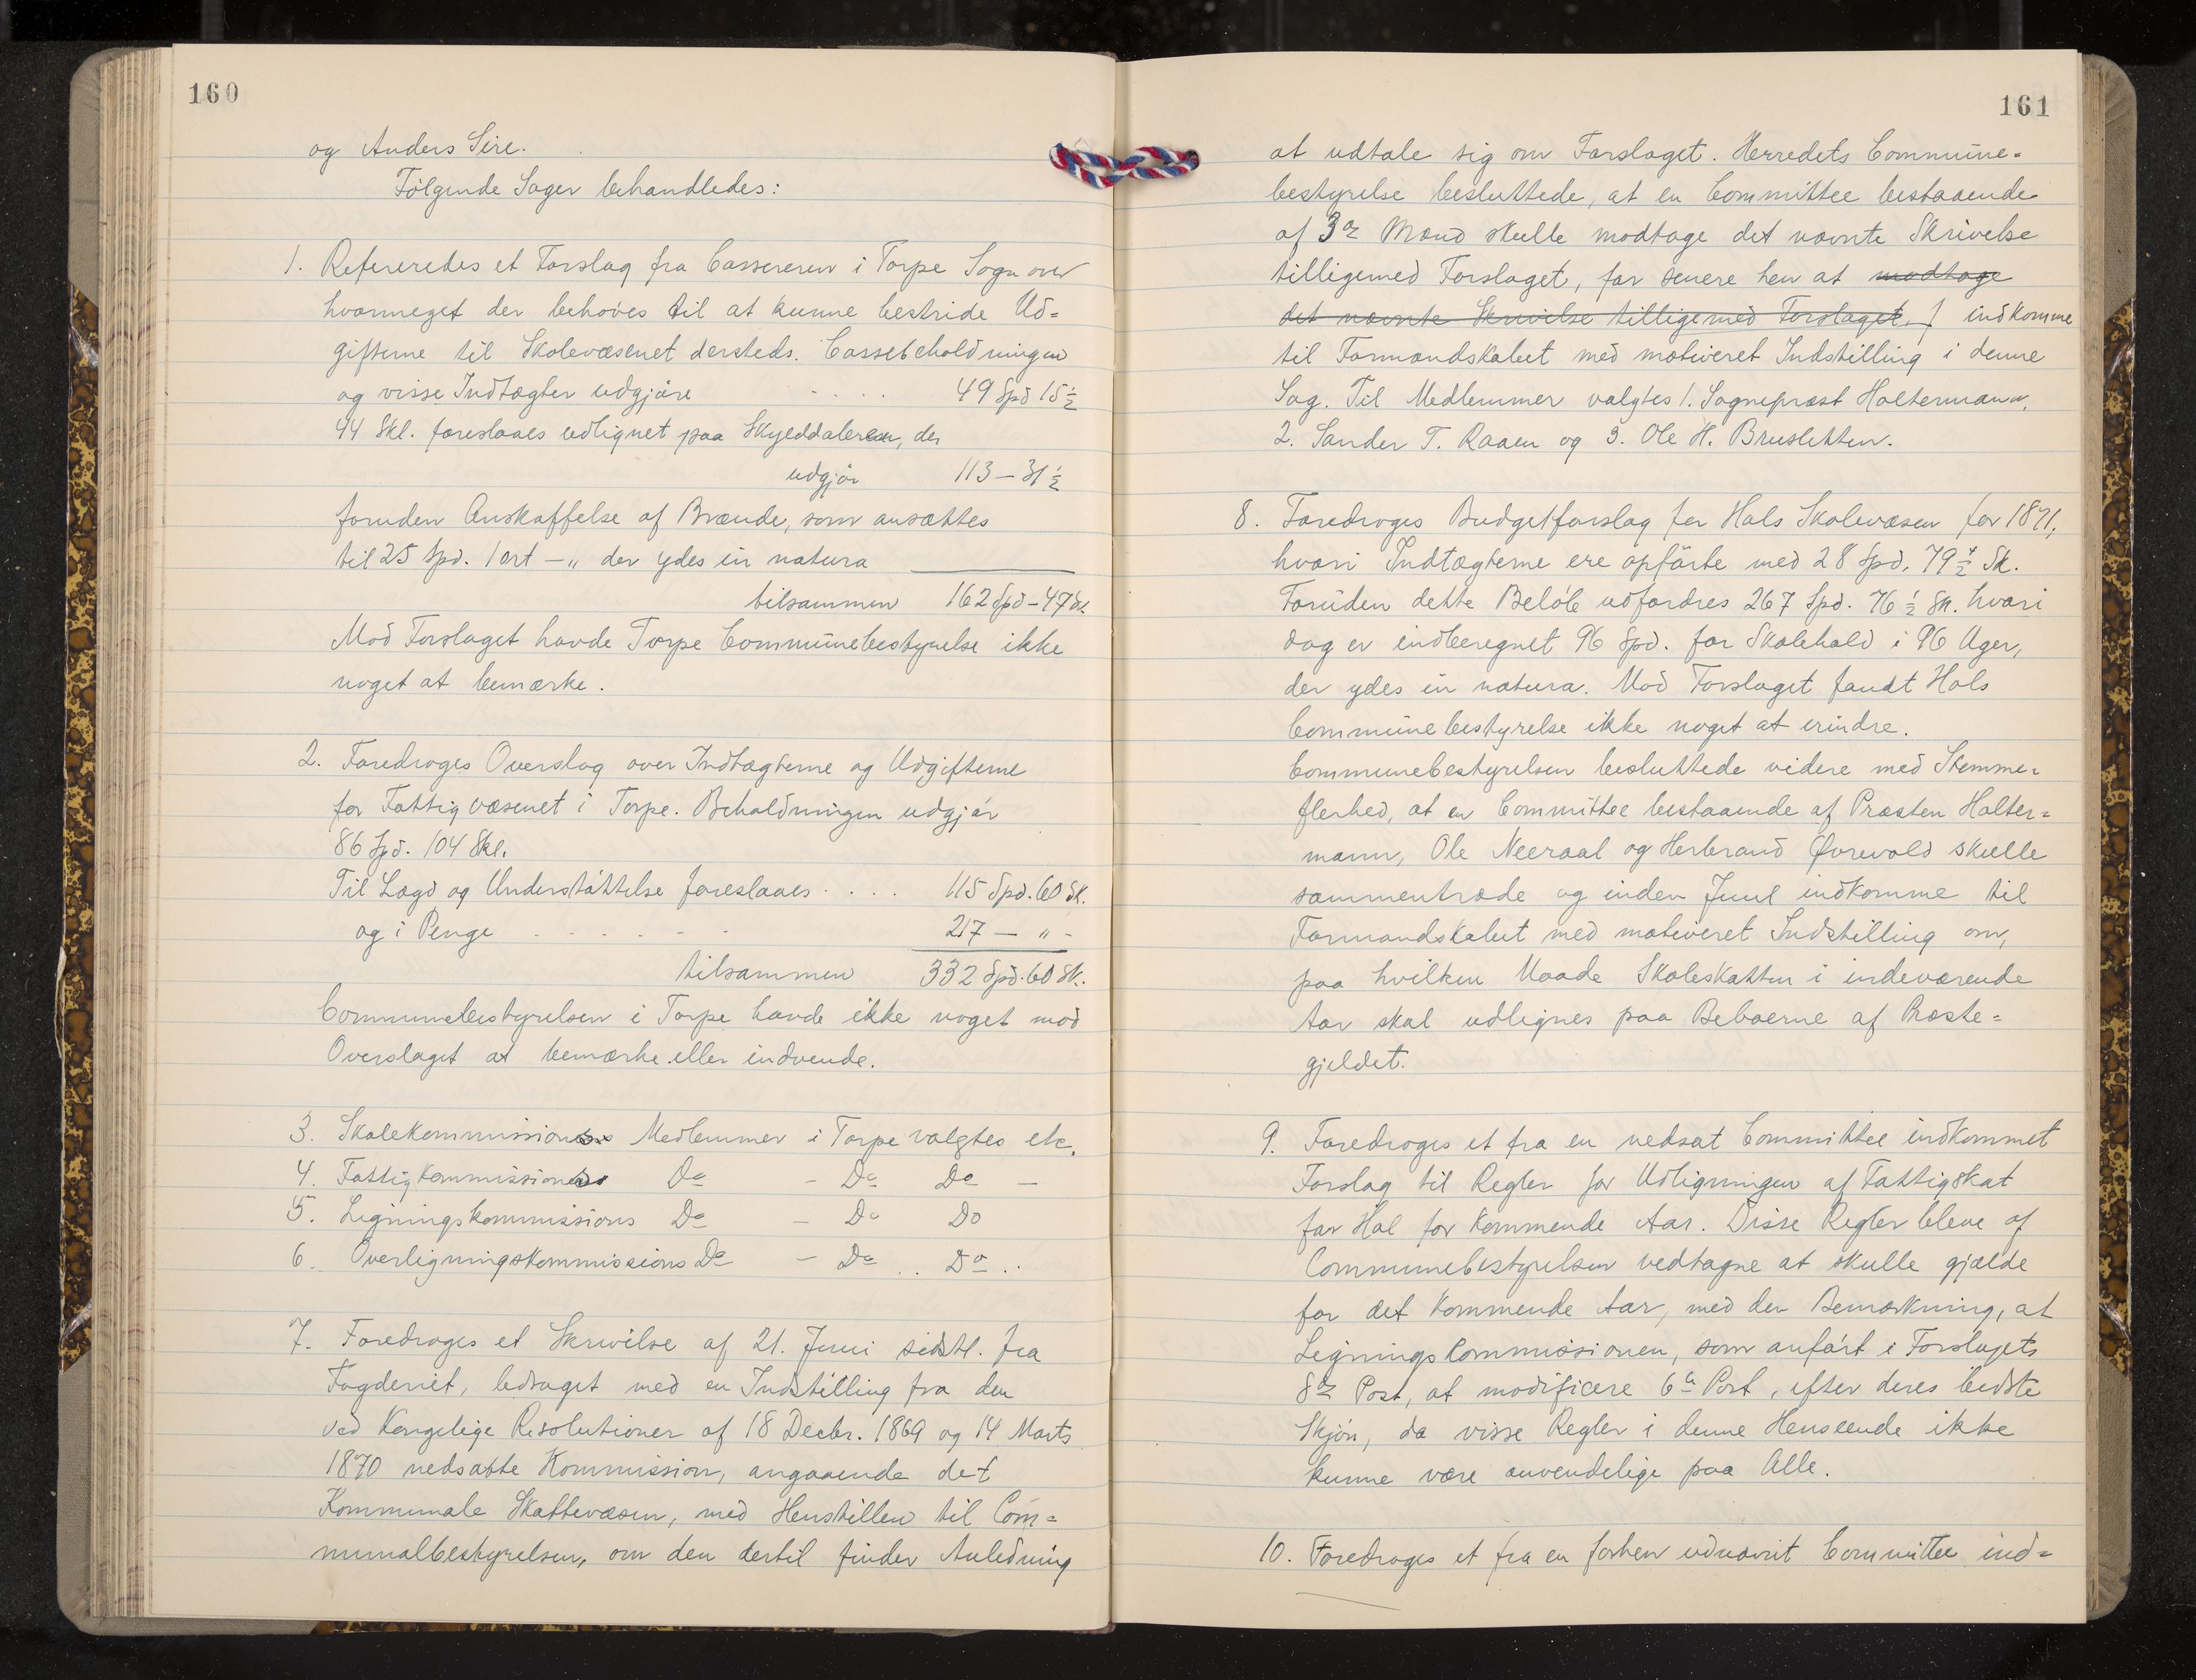 160
og Anders Sire.
Følgende Sager behandledes:
1. Refereredes et Forslag fra Cassereren i Torpe Sogn over
hvormeget der behøves til at kunne bestride Ud=
gifterne til Skolevæsenet dersteds. Cassebeholdningen
og visse Indtægter udgjøre - . . . 49 Spd 15½
44 Skl. foreslaaes udlignet paa Skylddaleren, der
udgjør 113 – 31½
foruden Anskaffelse af Brænde, som ansættes
til 25 Spd. 1 ort – „ der ydes in natura
tilsammen 162 Spd – 47 Sk.
Mod Forslaget havde Torpe Communebestyrelse ikke
noget at bemærke.
2. Foredroges Overslag over Indtægterne og Udgifterne
for Fattigvæsenet i Torpe. Beholdningen udgjør
86 Spd. 104 Skl.
Til Lægd og Understøttelse foreslaaes . . . . 115 Spd. 60 Sk.
og i Penge . - - - - - 217 – „ -
tilsammen 332 Spd. 60 Sk.
Communebestyrelsen i Torpe havde ikke noget mod
Overslaget at bemærke eller indvende.
3. Skolekommissionens Medlemmer i Torpe valgtes etc.
4. Fattigkommissionens Do – Do Do –
5. Ligningskommissions Do – Do Do
6. Overligningskommissions Do – Do . . Do . .
7. Foredroges et Skrivelse af 21. Juni sidstl. fra
Fogderiet, ledsaget med en Indstilling fra den
ved Kongelige Resolutioner af 18 Decbr. 1869 og 14 Marts
1870 nedsatte Kommission, angaaende det
Kommunale Skattevæsen, med Henstillen til Com=
munalbestyrelsen, om den dertil finder Anledning
161
at udtale sig om Forslaget. Herredets Commune=
bestyrelse besluttede, at en Committee bestaaende
af 3de Mænd skulle modtage det nævnte Skrivelse
tilligemed Forslaget, for senere hen at modtage
det nævnte Skrivelse tilligemed Forslaget. ſ indkomme
til Formandskabet med motiveret Indstilling i denne
Sag. Til Medlemmer valgtes 1. Sognepræst Haltermann,
2. Sander T. Raaen og 3. Ole H. Brusletten.
8. Foredroges Budgetforslag for Hols Skolevæsen for 1871,
hvori Indtægterne ere opførte med 28 Spd. 79½ Sk.
Foruden dette Beløb udfordres 267 Spd. 76½ Sk. hvori
dog er indberegnet 96 Spd. for Skolehold i 96 Uger,
der ydes in natura. Mod Forslaget fandt Hols
Communebestyrelse ikke noget at erindre.
Communebestyrelsen besluttede videre med Stemme=
flerhed, at en Committee bestaaende af Præsten Halter=
mann, Ole Neeraal og HerbrandØrevold skulle
sammentræde og inden Juul indkomme til
Formandskabet med motiveret Indstilling om,
paa hvilken Maade Skoleskatten i indeværende
Aar skal udlignes paa Beboerne af Præste=
gjeldet.
9. Foredroges et fra en nedsat Committee indkommet
Forslag til Regler for Udligningen af Fattigskat
for Hol for kommende Aar. Disse Regler bleve af
Communebestyrelsen vedtagne at skulle gjælde
for det kommende Aar, med den Bemærkning, at
Ligningskommissionen, som anført i Forslagets
8de Post, at modificere 6te Post, efter deres bedste
Skjøn, da visse Regler i denne Henseende ikke
kunne være anvendelige paa Alle.
10. Foredroges et fra en forhen udnævnt Committee ind=